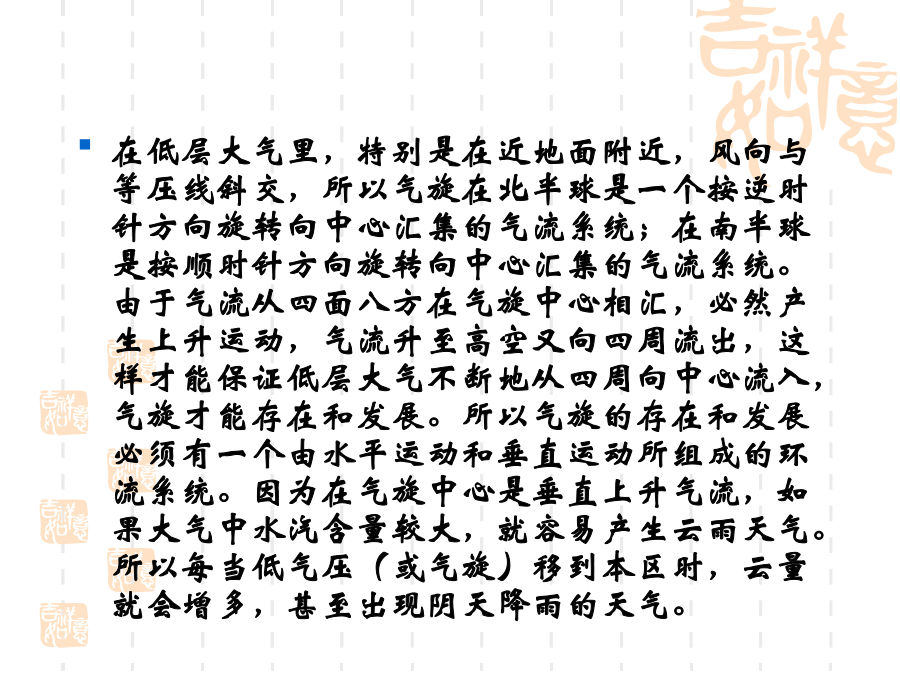 吉祥如意
在低层大气里，特别是在近地面附近，风向与
等压线斜交，所以气旋在北半球是一个按逆时
针方向旋转向中心汇集的气流系统；在南半球
是按顺时针方向旋转向中心汇集的气流系统。
由于气流从四面八方在气旋中心相汇，必然产
生上升运动，气流升至高空又向四周流出，这
样才能保证低层大气不断地从四周向中心流入，
气旋才能存在和发展。所以气旋的存在和发展
必须有一个由水平运动和垂直运动所组成的环
流系统。因为在气旋中心是垂直上升气流，如
果大气中水汽含量较大，就容易产生云雨天气。
所以每当低气压（或气旋）移到本区时，云量
就会增多，甚至出现阴天降雨的天气。
吉祥如意
吉祥如意
吉祥如意
吉祥如意
吉祥如意
吉祥如意